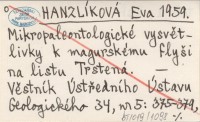 HANZLÍKOVÁ Eva 1959.
Mikropaleontologické vysvět-
livky k magurskému flyši
na listu Trstená —
Věstník Ústředního Ústavu
Geologického 34, no 5: 375-379,